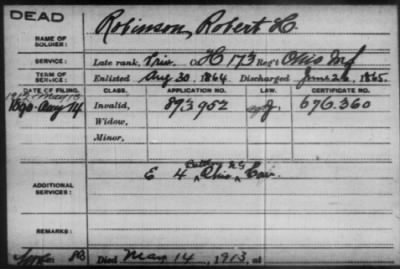 DEAD
NAME OF SOLDIER: Robinson, Robert H.
SERVICE: Late rank, Priv. Co. H 173 Reg't Ohio Inf
TERM OF SERVICE: Enlisted Aug 30, 1864. Discharged June 26, 1865.
DATE OF FILING. CLASS. APPLICATION NO. LAW. CERTIFICATE NO.
May
1890 Aug 14 Invalid, 893,952 676.360
Widow,
Minor,
ADDITIONAL SERVICES: E 4 Ohio Cav.
REMARKS:
Died May 14, 1913, at